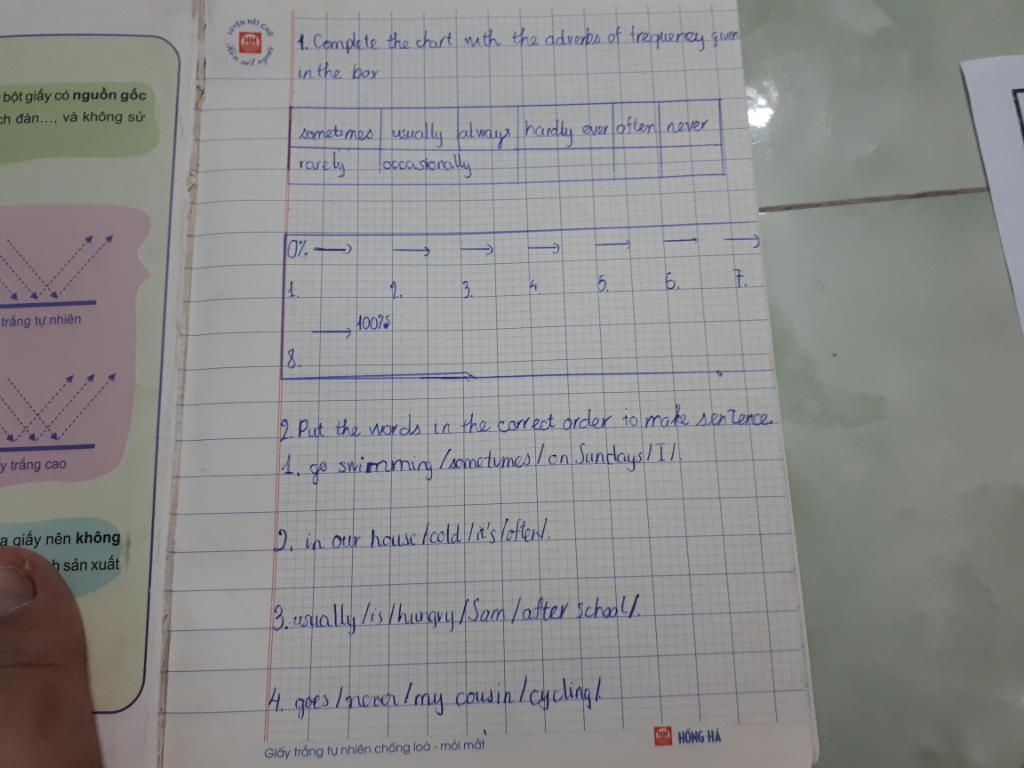 LUYỆN NÉT CHỮ
HH
RÈN NẾT NGƯỜI
1. Complete the chart with the adverbs of frequency given
in the box
sometimes usually always hardly ever often never
rarely occasionally
0% → → → → → → →
1. 2. 3. 4. 5. 6. 7.
→ 100%
8.
2. Put the words in the correct order to make sentence.
1. go swimming / sometumes / on Sundays / I /.
2. in our house / cold / it's / often /.
3. usually / is / hungry / Sam / after school /.
4. goes / never / my cousin / cycling /.
Giấy trắng tự nhiên chống loá - mỏi mắt
HH HỒNG HÀ
bột giấy có nguồn gốc
ch đàn..., và không sử
trắng tự nhiên
y trắng cao
a giấy nên không
h sản xuất